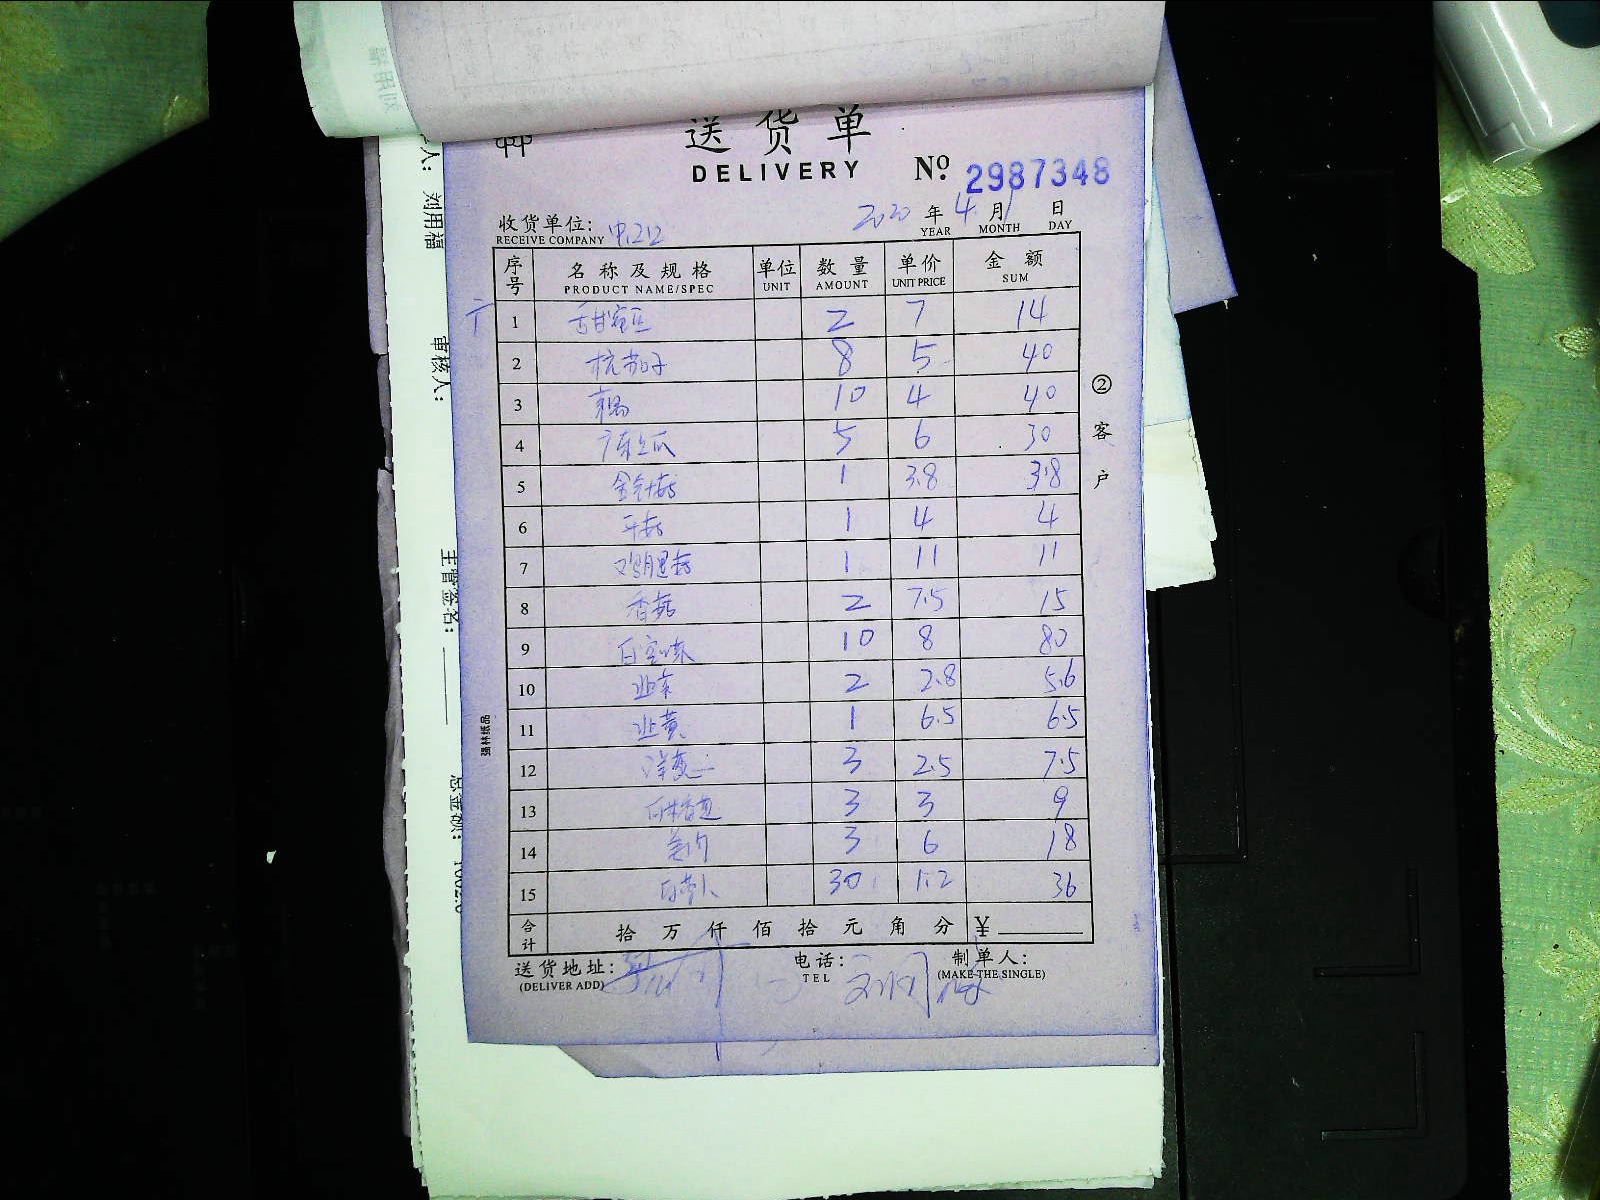 送货单
DELIVERY Nº. 2987348
2020 年 4 月 1 日
YEAR MONTH DAY
收货单位:
RECEIVE COMPANY
序号 名称及规格 单位 数量 单价 金额
PRODUCT NAME/SPEC UNIT AMOUNT UNIT PRICE SUM
1 甜蜜豆 2 7 14
2 杭茄子 8 5 40
3 莱阳 10 4 40
4 广东丝瓜 5 6 30
5 金针菇 1 3.8 3.8
6 平菇 1 4 4
7 鸡腿菇 1 11 11
8 香菇 2 7.5 15
9 10 8 80
10 韭菜 2 2.8 5.6
11 韭黄 1 6.5 6.5
12 3 2.5 7.5
13 3 3 9
14 3 6 18
15 白萝卜 30 1.2 36
合计 拾 万 仟 佰 拾 元 角 分 ¥
送货地址: 电话: 制单人:
(DELIVER ADD) TEL (MAKE THE SINGLE)
② 客户
强林纸品
刘用福
审核人:
主管签名:
总金额: